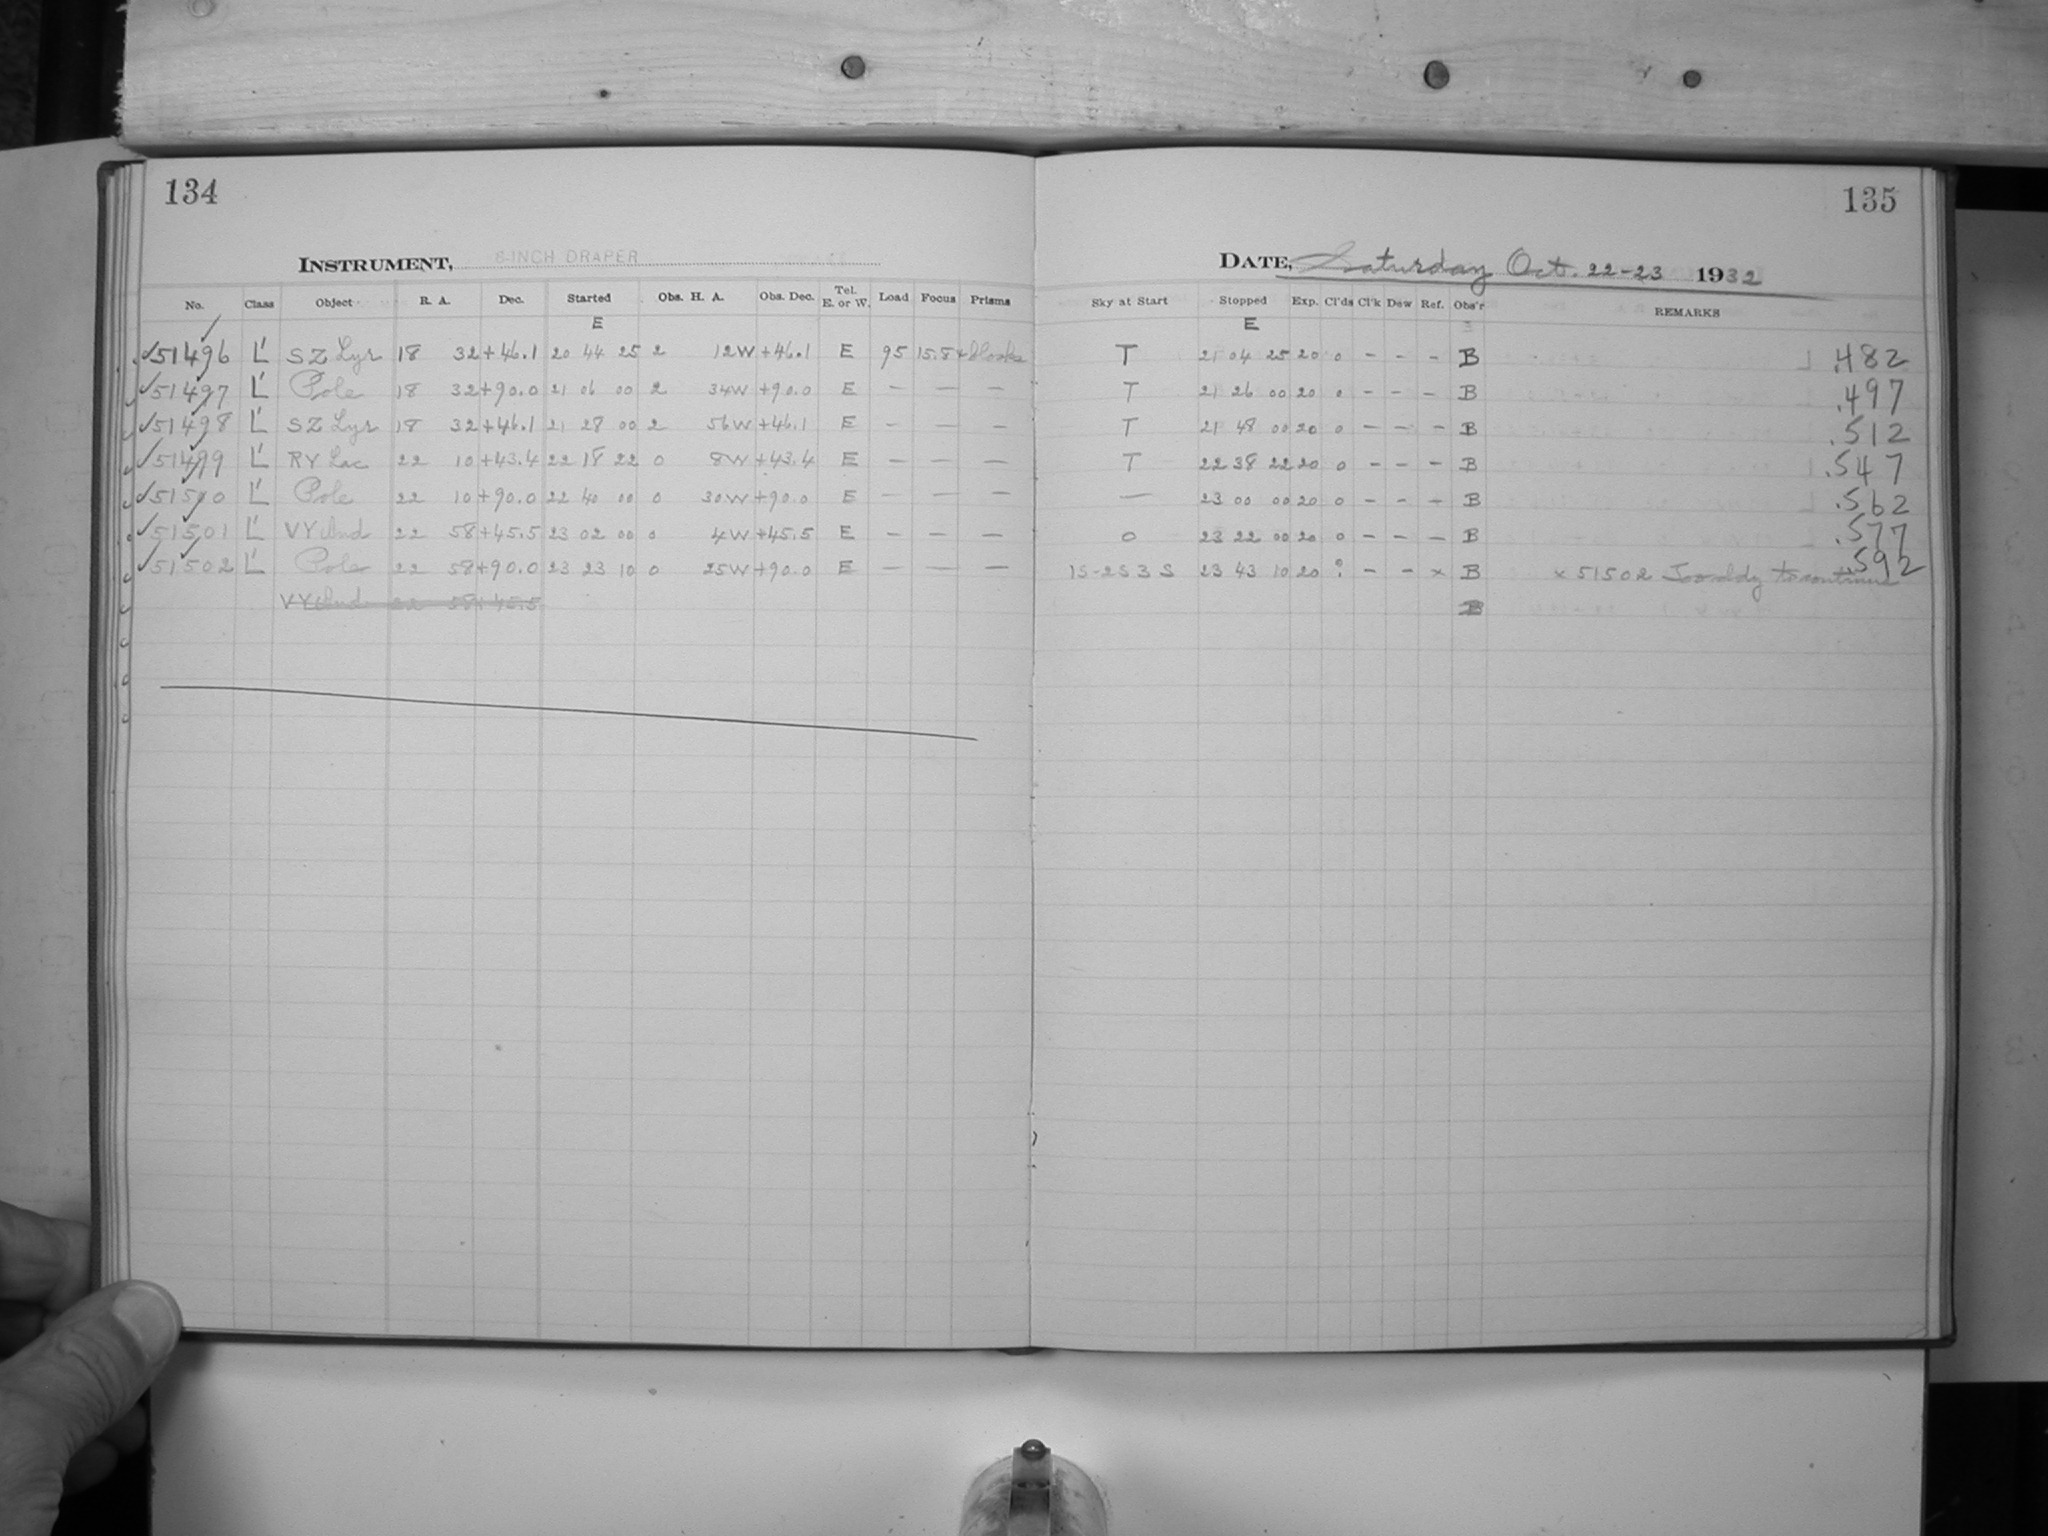 134
INSTRUMENT, 8-INCH DRAPER
No. Class Object R. A. Dec. Started Obs. H. A. Obs. Dec. Tel. E. or W. Load Focus Prisms
E
51496 L' SZ Lyr 18 32 +46.1 20 44 25 2 12W +46.1 E 95 15.8
51497 L' Pole 18 32 +90.0 21 06 00 2 34W +90.0 E — — —
51498 L' SZ Lyr 18 32 +46.1 21 28 00 2 56W +46.1 E — — —
51499 L' RY Lac 22 10 +43.4 22 18 22 0 8W +43.4 E — — —
51500 L' Pole 22 10 +90.0 22 40 00 0 30W +90.0 E — — —
51501 L' VY And 22 58 +45.5 23 02 00 0 4W +45.5 E — — —
51502 L' Pole 22 58 +90.0 23 23 10 0 25W +90.0 E — — —
VY And 22 58 +45.5
135
DATE, Saturday Oct. 22-23 1932
Sky at Start Stopped Exp. Cl'ds Cl'k Dew Ref. Obs'r REMARKS
E
T 21 04 25 20 0 – – – B .482
T 21 26 00 20 0 – – – B .497
T 21 48 00 20 0 – – – B .512
T 22 38 22 20 0 – – – B .547
— 23 00 00 20 0 – – – B .562
0 23 22 00 20 0 – – – B .577
1S-2S 3 S 23 43 10 20 ? – – x B x 51502 Too cldy to continue .592
B